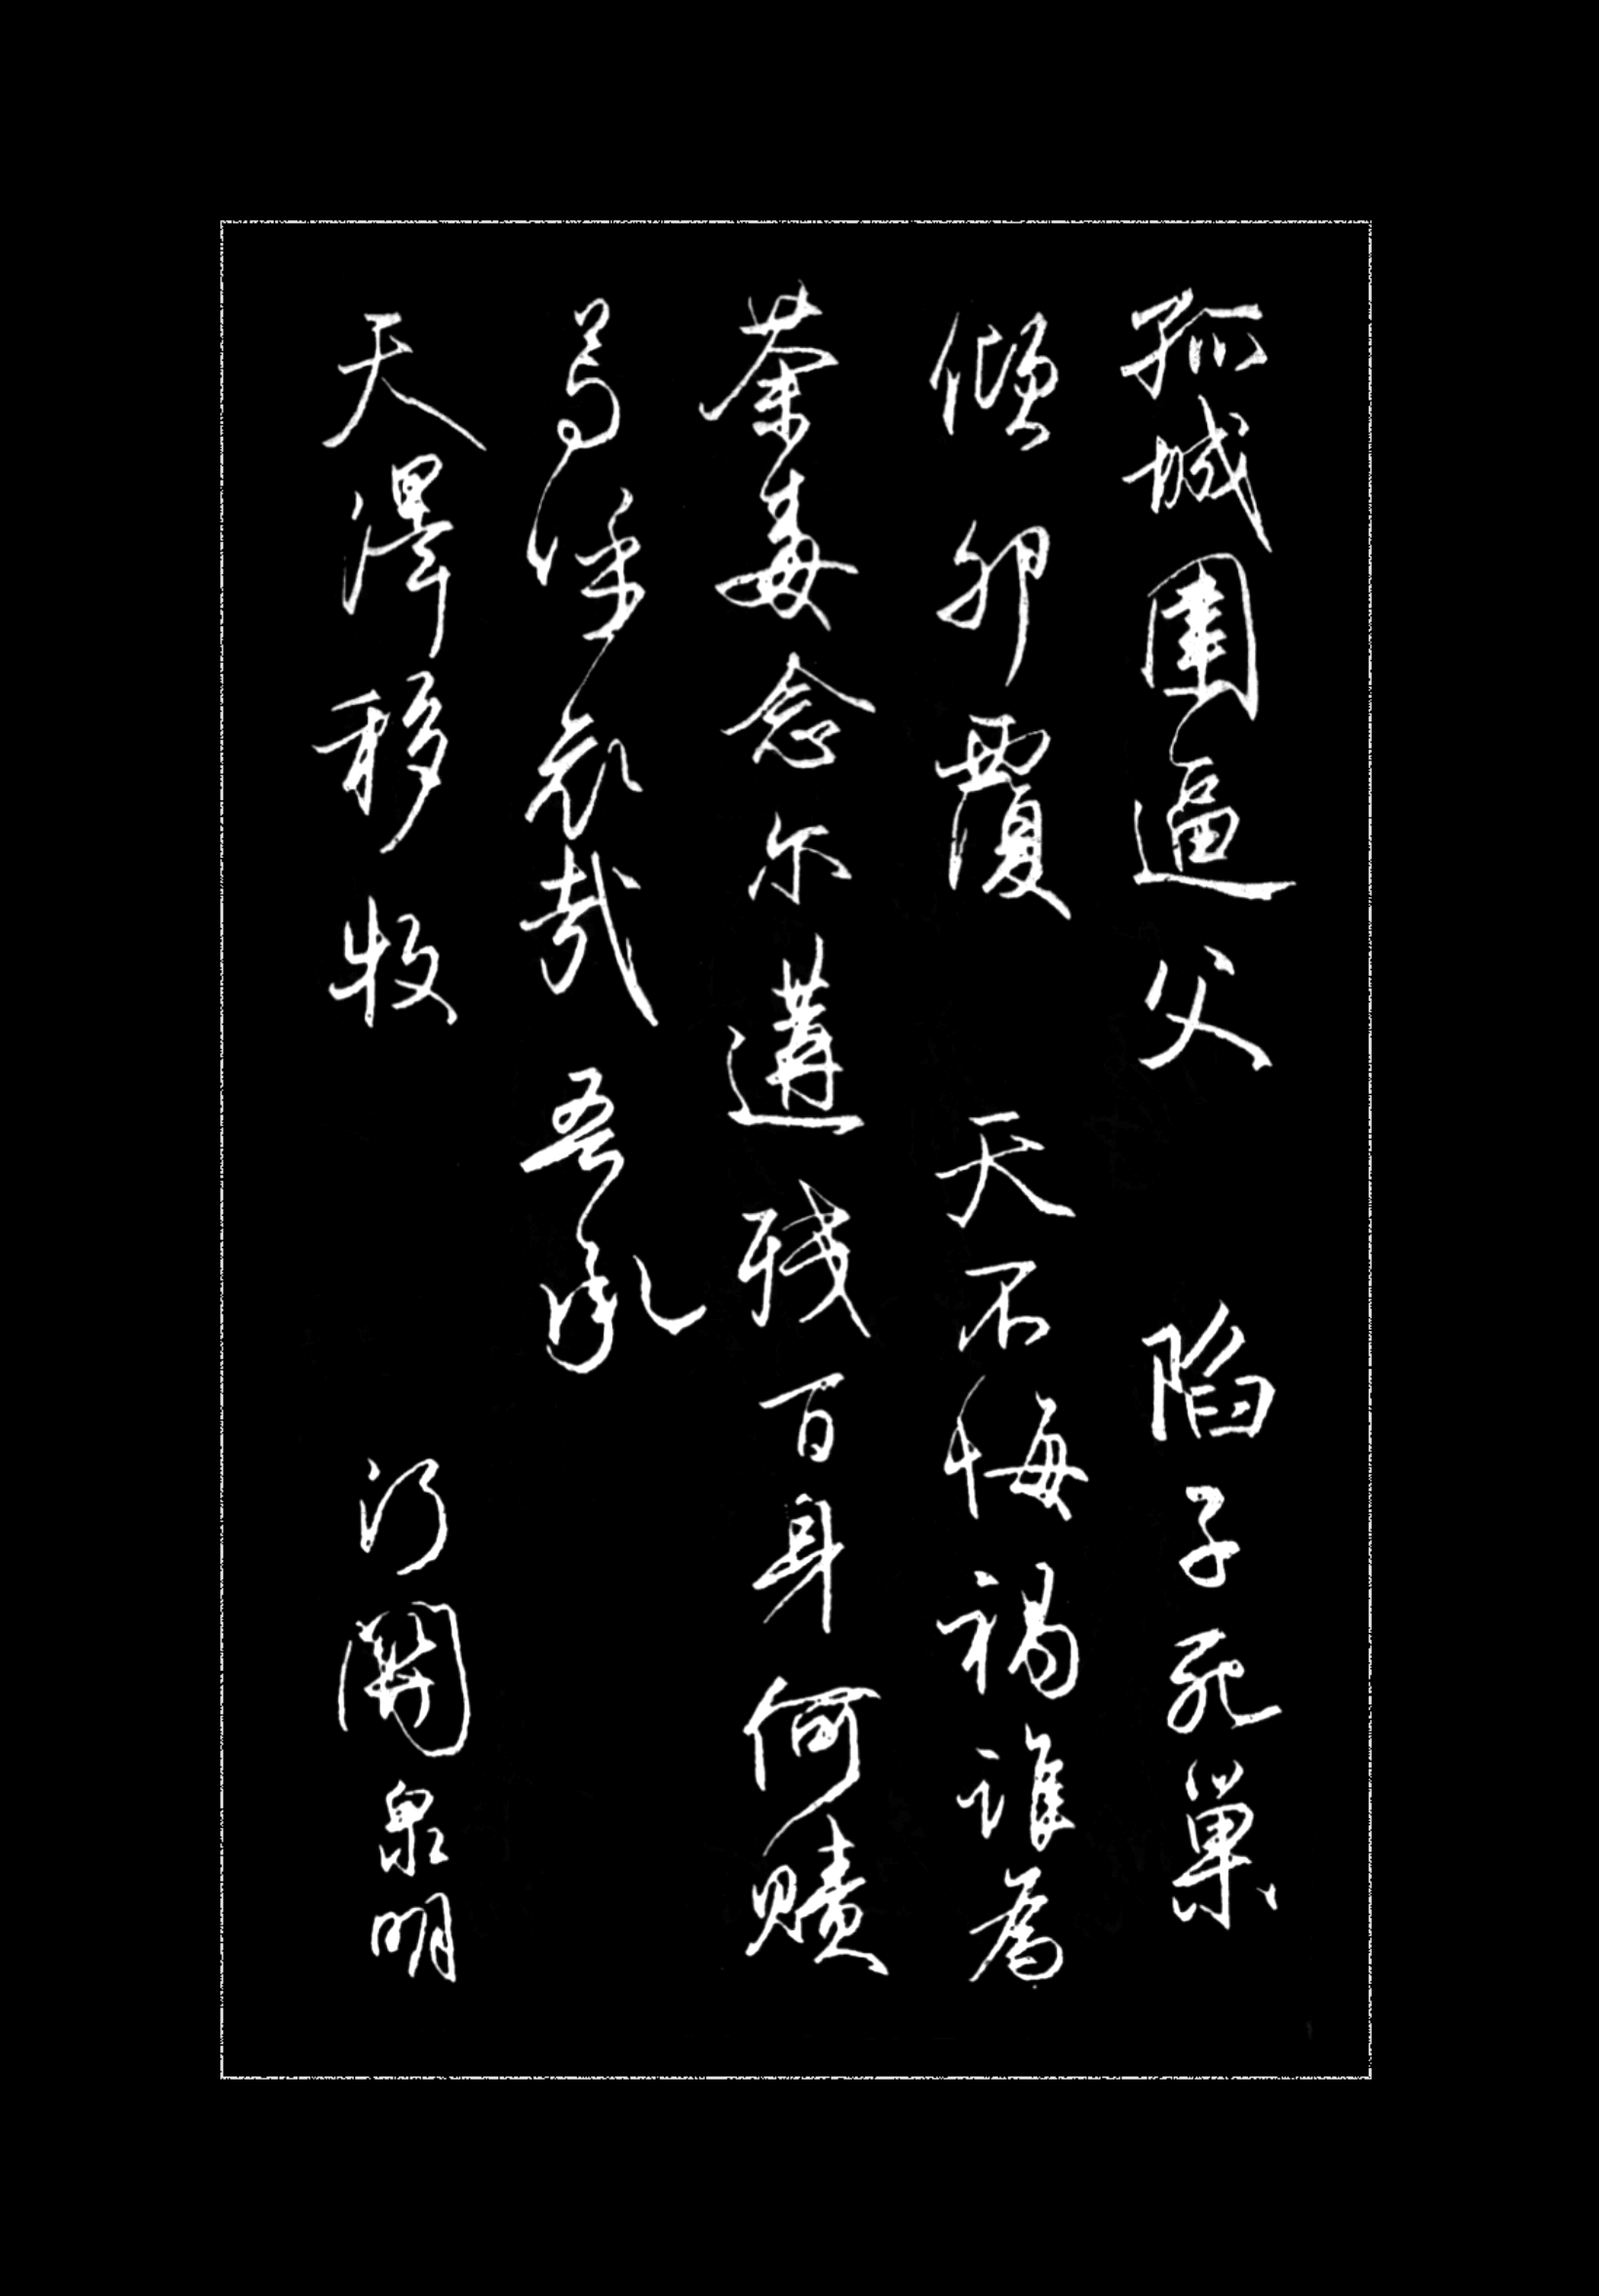 孤城圍逼父陷子死巢
傾卵覆天不悔禍誰為
荼毒念尔遘残百身何贖
嗚呼哀哉吾承
天澤移牧河關泉明